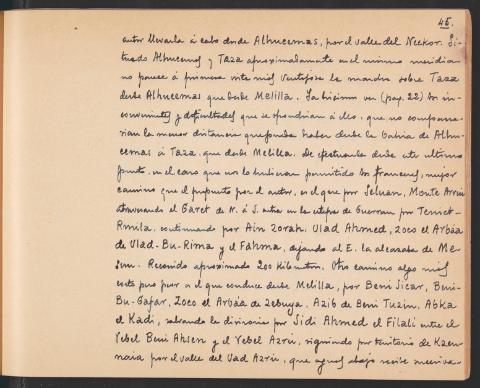 45.
autor llevarla á cabo desde Alhucemas, por el valle del Neckor. Si-
tuado Alhucemas y Taza aproximadamente en el mismo meridia-
no parece á primera vista más ventajosa la marcha sobre Taza
desde Alhucemas que desde Melilla. Ya hicimos ver (pag. 22) los in-
convenientes y dificultades que se opondrian á ello, que no compensa-
rian la menor distancia que pueda haber desde la bahia de Alhu-
cemas á Taza, que desde Melilla. De efectuarla desde este ultimo
punto, en el caso que nos lo hubieran permitido los franceses, mejor
camino que el propuesto por el autor, es el que por Seluan, Monte Arruí
atravesando el Garet de N. á S. entra en la estepa de Guerrau por Teniet-
Rmila, continuando por Ain Zorah, Ulad Ahmed, Zoco el Arbáa
de Vlad-Bu-Rima y el Fahma, dejando al E. la alcazaba de Me-
sun. Recorrido aproximado 200 kilometros. Otro camino algo más
corto pero peor es el que conduce desde Melilla, por Beni Sicar, Beni-
Bu-Gafar, Zoco el Arbáa de Zebuya, Azib de Beni Tuzin, Abka
el Kadi, salvando la divisoria por Sidi Ahmed el Filali entre el
Yebel Beni Ahsen y el Yebel Azru, siguiendo por territorio de Kzen-
naia por el valle del Uad Azru, que aguas abajo recibe sucesiva-